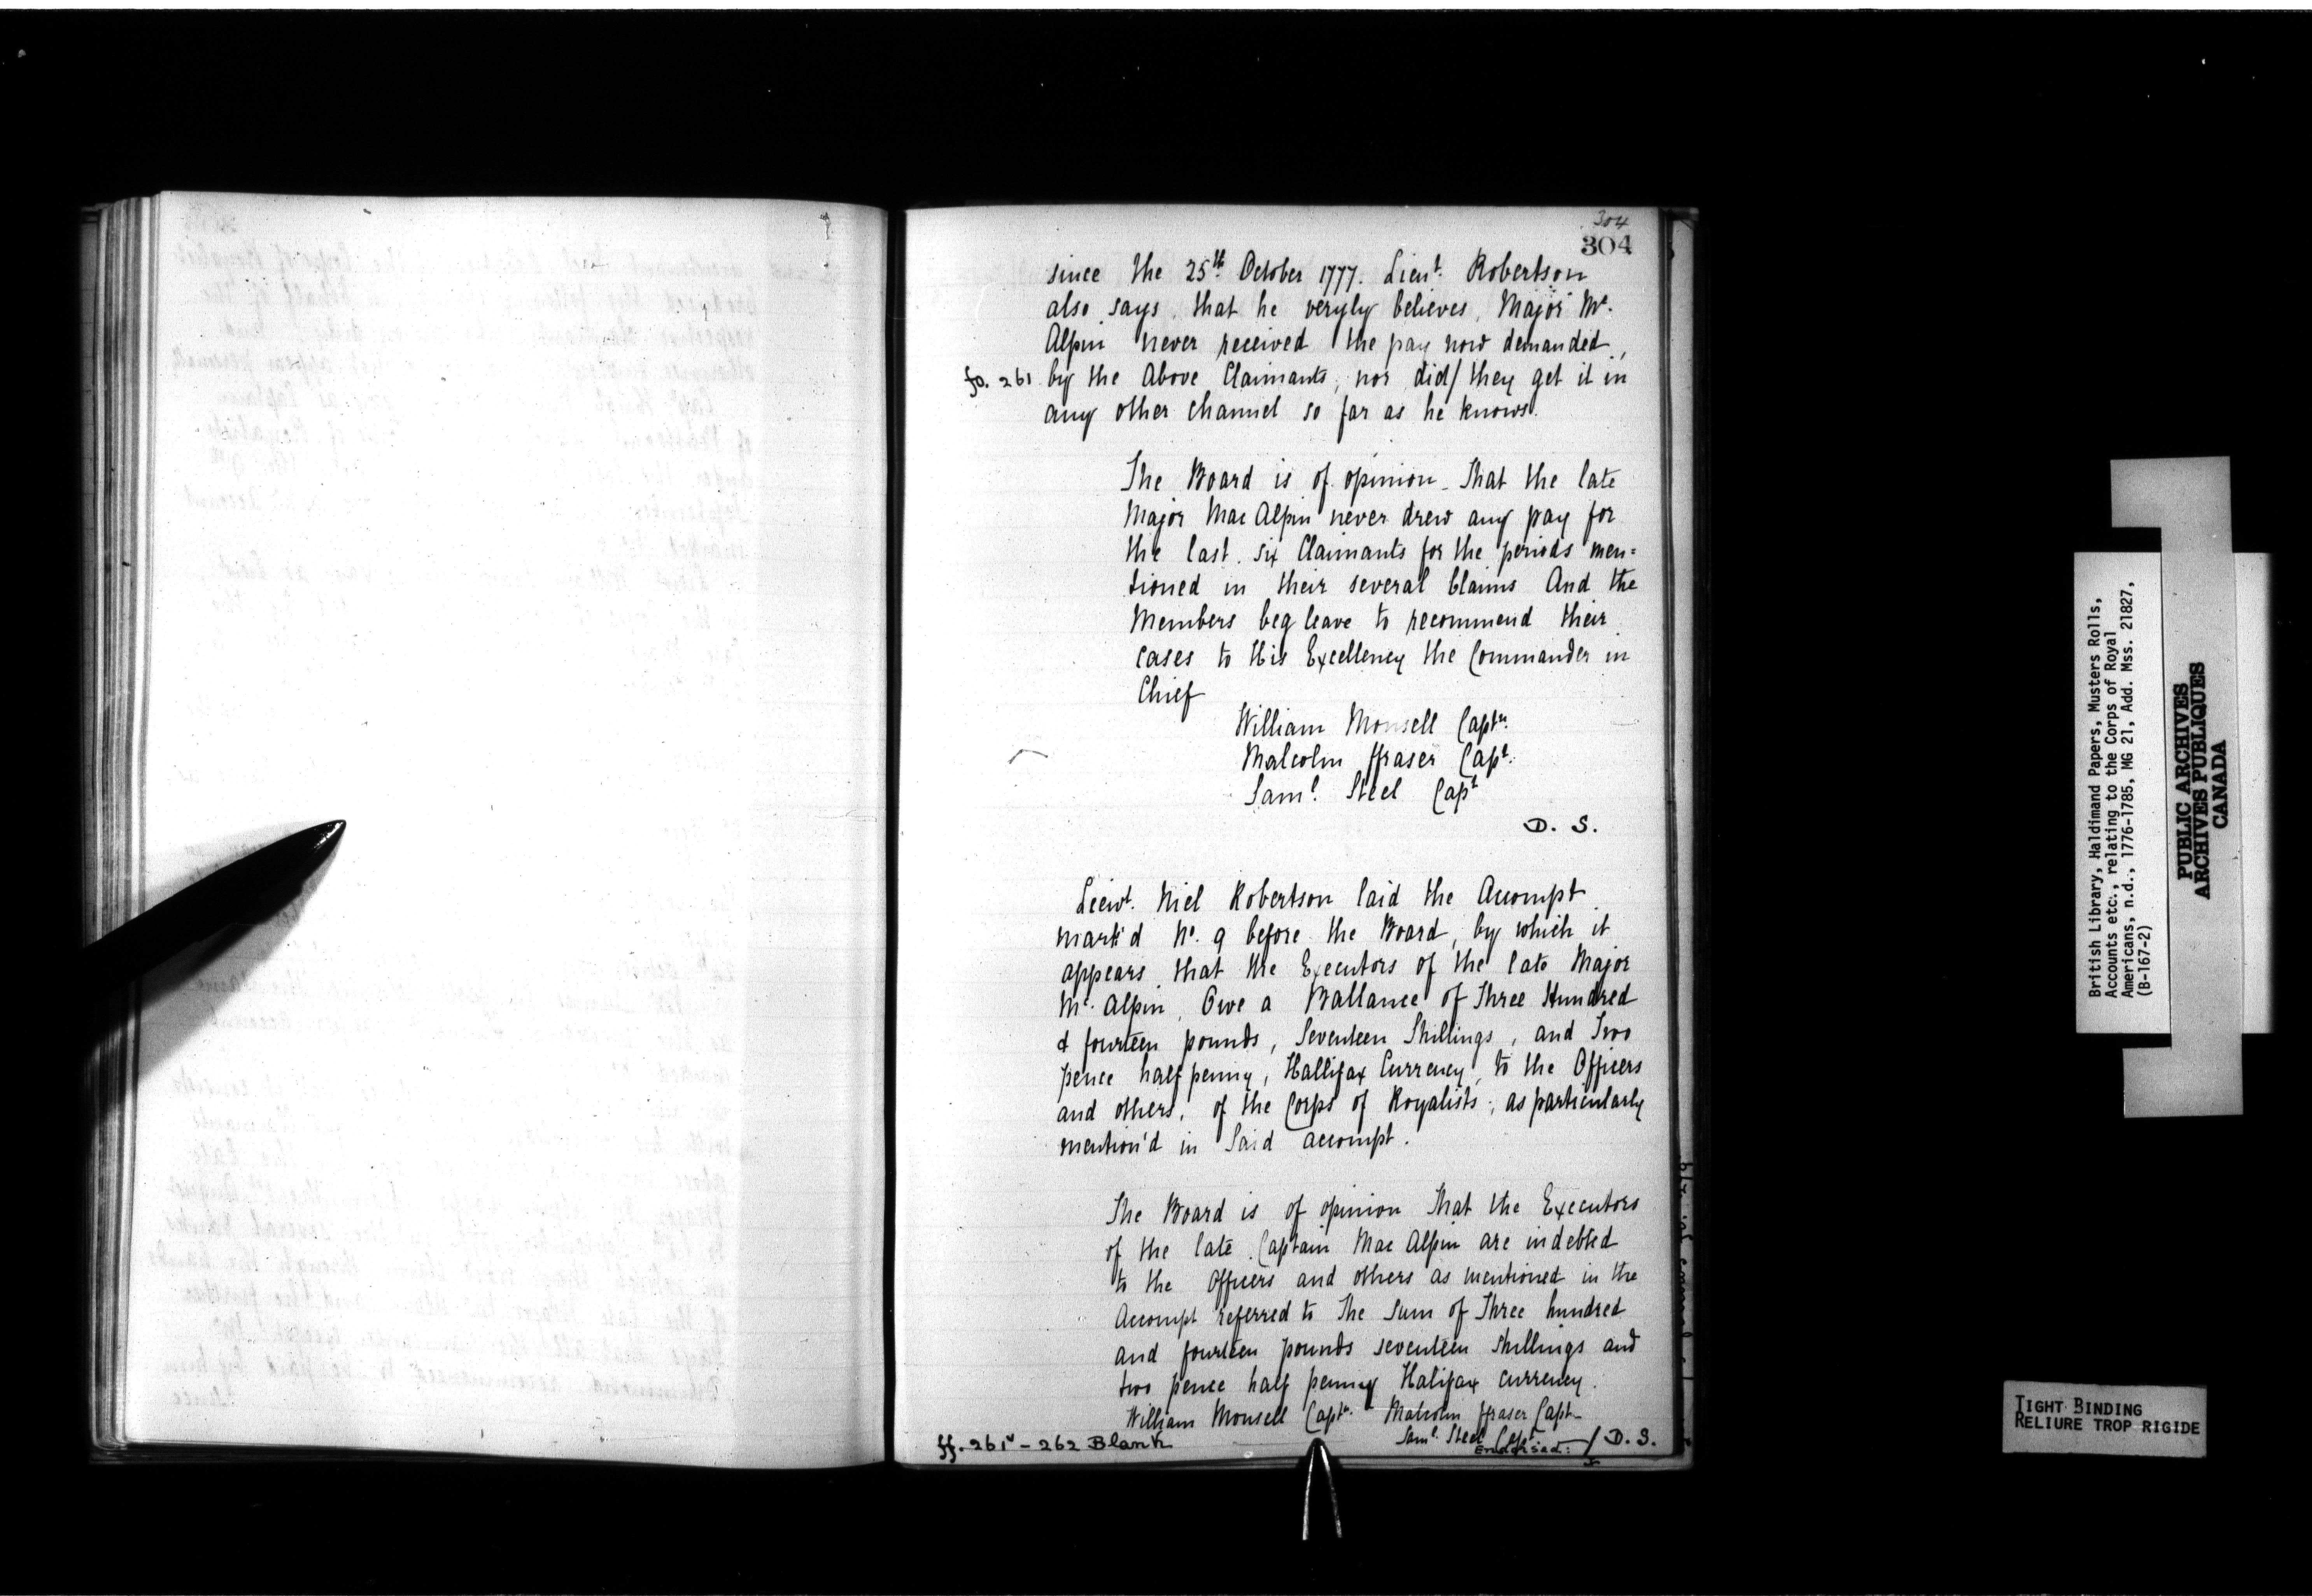 304
304
since the 25th October 1777. Lieut. Robertson
also says, that he veryly believes, Major Mc.
Alpin never received the pay now demanded,
fo. 261 by the Above Claimants, nor did/ they get it in
any other channel so far as he knows.
The Board is of opinion That the late
Major Mac Alpin never drew any pay for
the last six Claimants for the periods men=
tioned in their several Claims And the
Members beg leave to recommend their
cases to His Excellency the Commander in
Chief
William Monsell Captn.
Malcolm ffraser Capt.
Saml. Steel Capt
D. S.
Lieut. Niel Robertson laid the Accompt
mark'd No. 9 before the Board, by which it
appears that the Executors of the late Major
Mc. Alpin, Owe a Ballance of Three Hundred
& fourteen pounds, Seventeen Shillings, and Two
pence half penny, Hallifax Currency, to the Officers
and others, of the Corps of Royalists, as particularly
mention'd in Said accompt.
The Board is of opinion That the Executors
of the late Captain Mac Alpin are indebted
to the Officers and others as mentioned in the
Accompt referred to The Sum of Three hundred
and fourteen pounds seventeen shillings and
two pence half penny Halifax currency.
William Monsell Captn. Malcolm ffraser Capt
Saml. Steel Capt
ff. 261v - 262 Blank Endorsed: / D. S.
British Library, Haldimand Papers, Musters Rolls,
Accounts etc., relating to the Corps of Royal
Americans, n.d., 1776-1785, MG 21, Add. Mss. 21827,
(B-167-2)
PUBLIC ARCHIVES
ARCHIVES PUBLIQUES
CANADA
TIGHT BINDING
RELIURE TROP RIGIDE